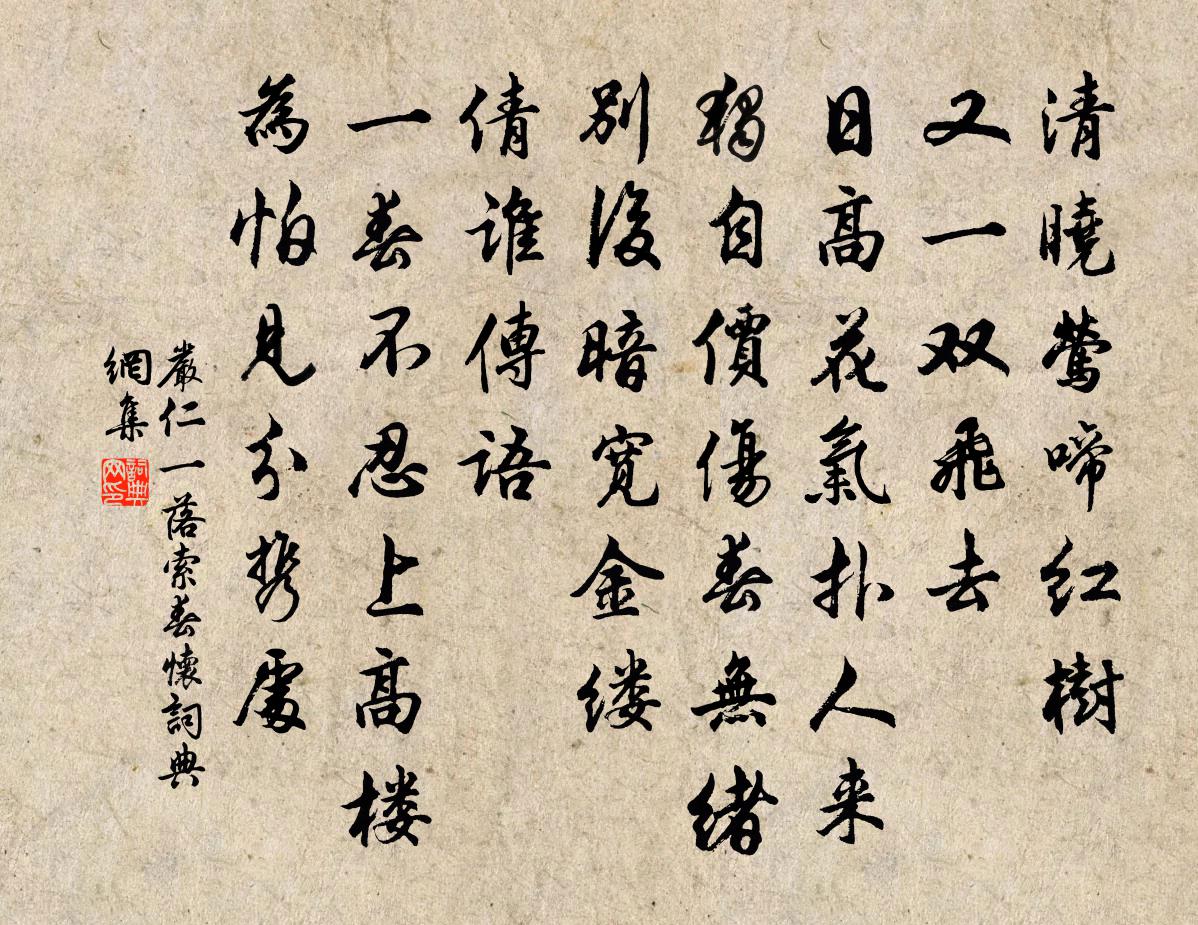 清曉鶯啼红樹
又一双飛去
日高花氣扑人来
獨自價傷春無緒
別後暗寬金缕
倩谁傳语
一春不忍上高楼
為怕見分携處
嚴仁一落索春懷詞典
網集
詞典
网印